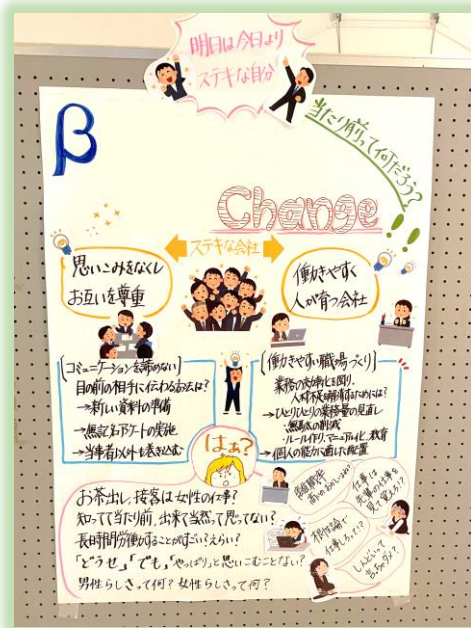 明日は今日より
ステキな自分
β
当たり前って何だろう?!!
Change
ステキな会社
思いこみをなくし
お互いを尊重
働きやすく
人が育つ会社
[コミュニケーションを諦めない]
目の前の相手に伝わる方法は?
→新しい資料の準備
→無記名アンケートの実施
→当事者以外も巻き込む
[働きやすい職場づくり]
業務の効率化を図り、
人材不足を解消するためには?
→ひとりひとりの業務量の見直し
・ルール作り、マニュアル化、教育
→個人の能力に適した配置
はぁ?
お茶出し、接客は女性の仕事?
知ってて当たり前、出来て当然って思ってない?
長時間労働することがすごい?えらい?
「どうせ」「でも」「やっぱり」と思いこむことない?
男性らしさって何? 女性らしさって何?
仕事は
先輩の仕事を
見て覚えろ!?
根性論で
仕事しろって!?
しんどいって
言っちゃダメ?